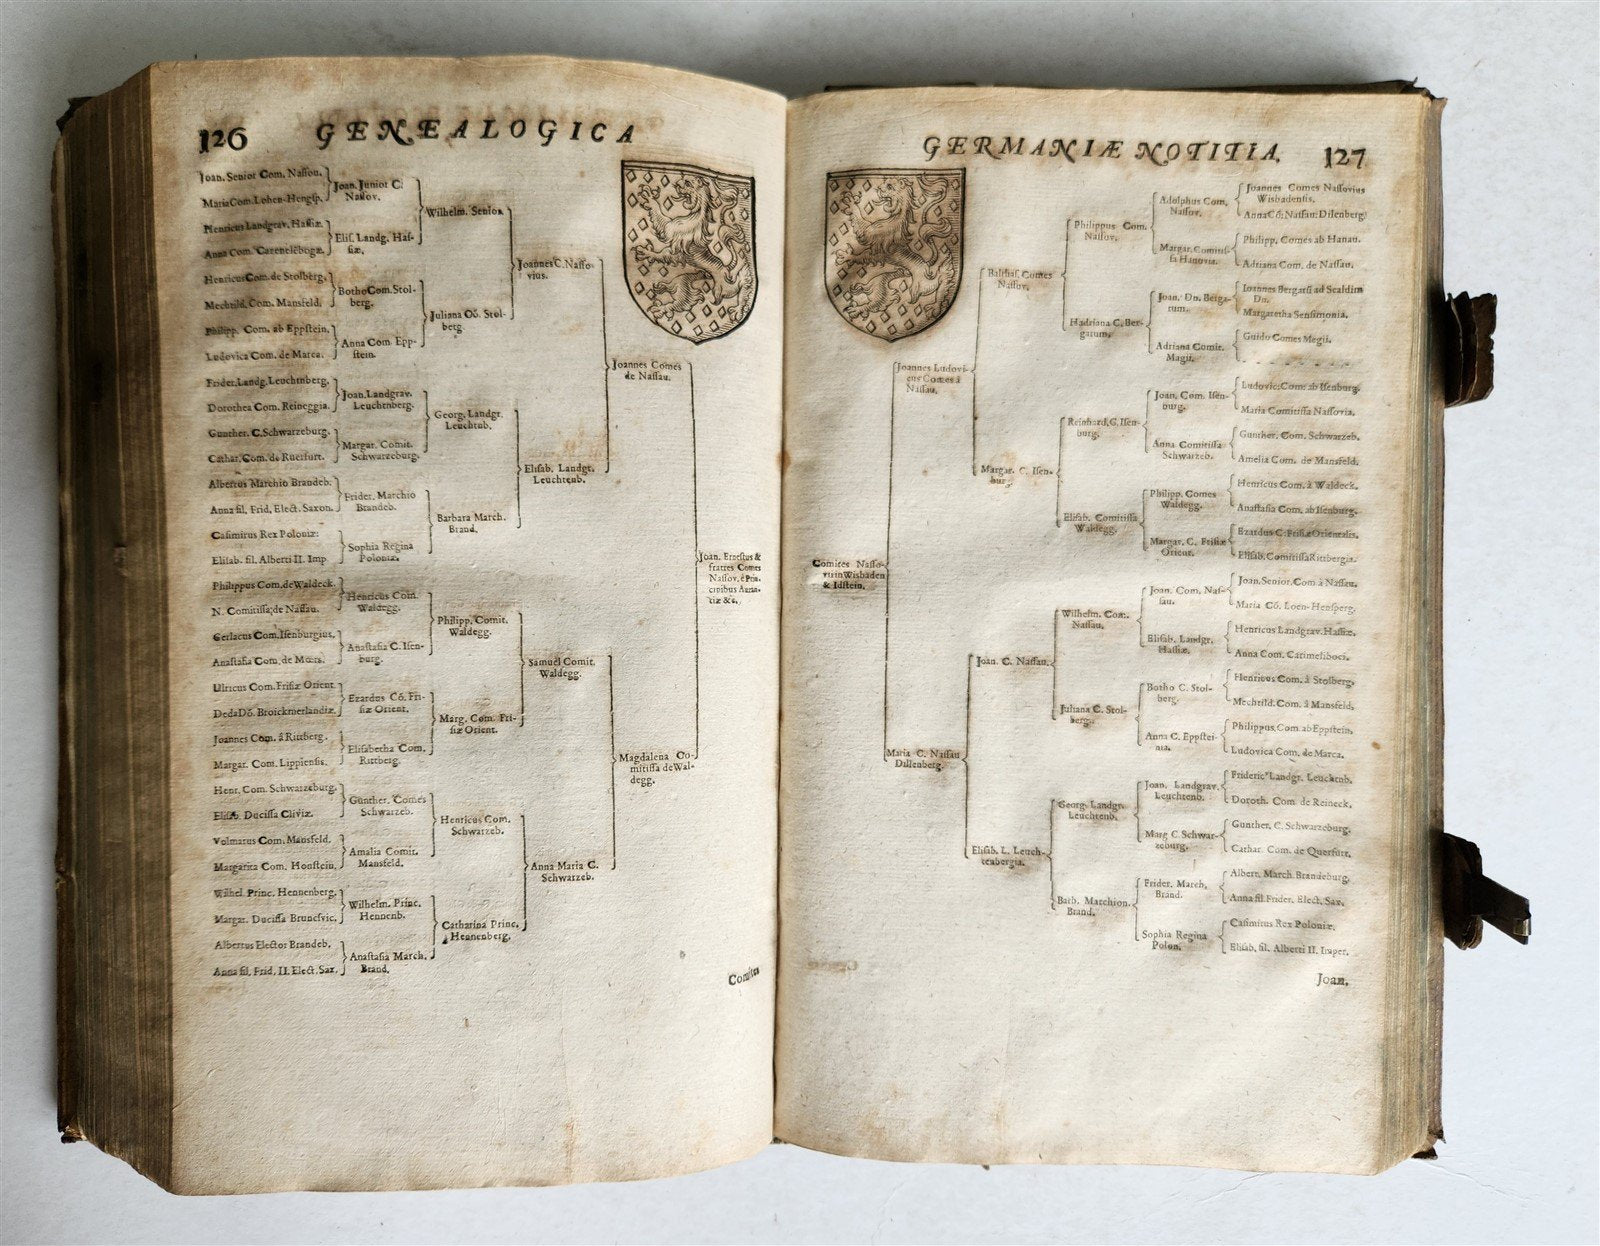 126 GENEALOGICA
Joan. Senior Com. Nassou.
Maria Com. Lohen-Hengsp.
Henricus Landgrav. Hassiæ
Anna Com. Catenelebogæ.
Henricus Com. de Stolberg.
Mechtild. Com. Mansfeld.
Philipp. Com. ab Eppstein.
Ludovica Com. de Marca.
Frider. Landg. Leuchtnberg.
Dorothea Com. Reineggia.
Gunther. C. Schwarzeburg.
Cathar. Com. de Ruerfurt.
Albertus Marchio Brandeb.
Anna fil. Frid. Elect. Saxon.
Casimirus Rex Poloniæ:
Elisab. fil. Alberti II. Imp
Philippus Com. de Waldeck.
N. Comitissa; de Nassau.
Gerlacus Com. Isenburgius.
Anastasia Com. de Mœrs.
Ulricus Com. Frisiæ Orient.
Deda Dõ. Broickmerlandiæ.
Joannes Com. â Rittberg.
Margar. Com. Lippiensis.
Henr. Com. Schwarzeburg.
Elisab. Ducissa Cliviæ.
Volmatus Com. Mansfeld.
Margarita Com. Honstein.
Wilhel. Princ. Hennenberg.
Margar. Ducissa Brunsvic.
Albertus Elector Brandeb.
Anna fil. Frid. II. Elect. Sax.
Joan. Junior C.
Nassov.
Elis. Landg. Has-
siæ.
Botho Com. Stol-
berg.
Anna Com. Epp-
stein.
Joan. Landgrav.
Leuchtenberg.
Margar. Comit.
Schwarzeburg.
Frider. Marchio
Brandeb.
Sophia Regina
Poloniæ.
Henricus Com.
Waldegg.
Anastasia C. Isen-
burg.
Ezardus Cõ. Fri-
siæ Orient.
Elisabetha Com.
Rittberg.
Gunther. Comes
Schwarzeb.
Amalia Comit.
Mansfeld.
Wilhelm. Princ.
Hennenb.
Anastasia March.
Brand.
Wilhelm. Senior.
Juliana Cõ. Stol-
berg.
Georg. Landgr.
Leuchtenb.
Barbara March.
Brand.
Philipp. Comit.
Waldegg.
Marg. Com. Fri-
siæ Orient.
Henricus Com.
Schwarzeb.
Catharina Princ.
Hennenberg.
Joannes C. Nasso-
vius.
Elisab. Landgr.
Leuchtenb.
Samuel Comit.
Waldegg.
Anna Maria C.
Schwarzeb.
Joannes Comes
de Nassau.
Magdalena Co-
mitissa de Wal-
degg.
Joan. Ernestus &
fratres Comes
Nassov. è Prin-
cipibus Auran-
tiæ &c.
Comites
GERMANIÆ NOTITIA. 127
Comites Nasso-
vii in Wisbaden
& Idstein.
Joannes Ludovi-
cus Comes â
Nassau.
Maria C. Nassau
Dillenberg.
Balthas. Comes
Nassov.
Margar. C. Isen-
burg.
Joan. C. Nassau.
Elisab. L. Leuch-
tenbergia.
Philippus Com.
Nassov.
Hadriana C. Ber-
garum.
Reinhard. C. Isen-
burg.
Elisab. Comitissa
Waldegg.
Wilhelm. Com.
Nassau.
Juliana C. Stol-
berg.
Georg. Landgr.
Leuchtenb.
Barb. Marchion.
Brand.
Adolphus Com.
Nassov.
Margar. Comitis-
sa Hanovia.
Joan. Dn. Berga-
rum.
Adriana Comit.
Magii.
Joan. Com. Isen-
burg.
Anna Comitissa
Schwarzeb.
Philipp. Comes
Waldegg.
Margar. C. Frisiæ
Orient.
Joan. Com. Nas-
sau.
Elisab. Landgr.
Hassiæ.
Botho C. Stol-
berg.
Anna C. Eppstei-
nia.
Joan. Landgrav.
Leuchtenb.
Marg. C. Schwar-
zeburg.
Frider. March.
Brand.
Sophia Regina
Polon.
Joannes Comes Nassovius
Wisbadensis.
Anna Cõ: Nassau: Dillenberg:
Philipp. Comes ab Hanau.
Adriana Com. de Nassau.
Joannes Bergarii ad Scaldim
Dn.
Margaretha Sensimonia.
Guido Comes Megii.
- - - - - - - -
Ludovic: Com: ab Isenburg.
Maria Comitissa Nassovia.
Gunther. Com. Schwarzeb.
Amelia Com. de Mansfeld.
Henricus Com. â Waldeck.
Anastasia Com. ab Isenburg.
Ezardus C. Frisiæ Orientalis.
Elisab. Comitissa Rittbergia.
Joan. Senior. Com â Nassau.
Maria Cõ. Loen-Hensperg.
Henricus Landgrav. Hassiæ.
Anna Com. Catimeliboci.
Henricus Com. â Stolberg.
Mechtild. Com. â Mansfeld.
Philippus Com ab Eppstein.
Ludovica Com. de Marca.
Frideric' Landgr. Leuchtnb.
Doroth. Com. de Reineck.
Gunther. C. Schwarzeburg.
Cathar. Com. de Querfurt.
Albert. March. Brandeburg.
Anna fil. Frider. Elect. Sax.
Casimirus Rex Poloniæ.
Elisab. fil. Alberti II. Imper.
Joan.